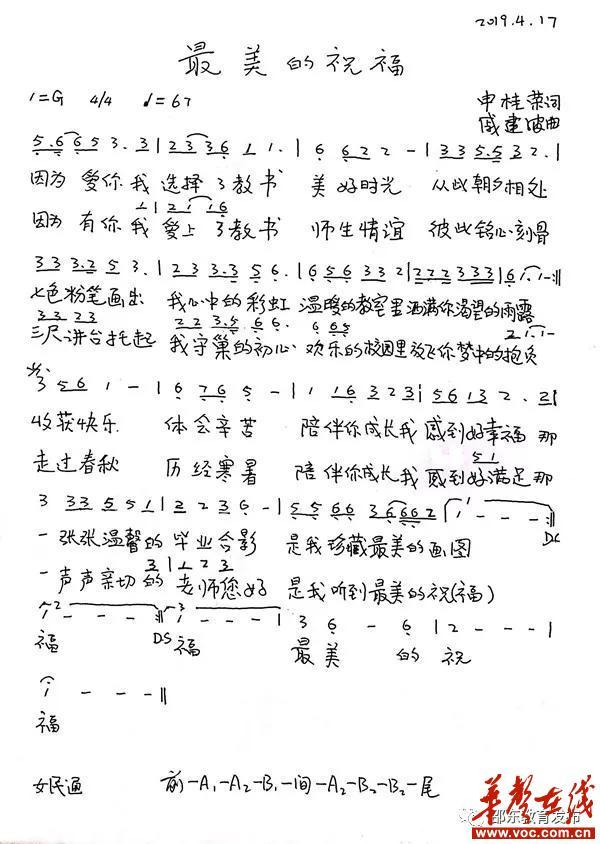 2019.4.17
最美的祝福
1=G 4/4 ♩=67 申桂荣词
盛建波曲
5.6 6 5 3. 3 | 2 3 3 6 1 1. | 6 6 2 2 - | 3 3 5.5 3 2. |
因为 爱你我 选择了教书 美好时光 从此朝夕相处
1 | 2 1 1 6
因为 有你我 爱上了教书 师生情谊 彼此铭心刻骨
3 3 3.2 5 3. | 2 3 3.3 5 6. | 6 5 6 3 3 2 | 2 2 2 3 3 3 | 6 1. 1 - :||
七色粉笔画出 我心中的彩虹 温暖的教室里洒满你渴望的雨露
3 3 2 3 2 2 3.5 6 6. 6 6 5 2 1. 1 -
三尺讲台托起 我守巢的初心 欢乐的校园里放飞你梦中的抱负
3 5 6 1 - | 6 7 6 5 - | 1 1 6 3 2 3 | 5 6 1 3 2. 2 |
收获快乐 体会辛苦 陪伴你成长我感到好幸福 那
5 1
走过春秋 历经寒暑 陪伴你成长我感到好满足 那
3 3 3 5 5 1 | 2 2 3 6 - | 5 5 6 6 3 6 6 6 2 | 1 - - - :||
一张张温馨的毕业合影 是我珍藏最美的画图 DC
3 | 1 2 3
一声声亲切的老师您好 是我听到最美的祝(福)
1 - - - :|| 1 - - - | 3 6 - 6 | 2 - - - |
福 DS 福 最美 的 祝
1 - - - ||
福
女民通 前-A₁-A₂-B₁-间-A₂-B₂-B₂-尾
邵东教育发布
华声在线
www.voc.com.cn